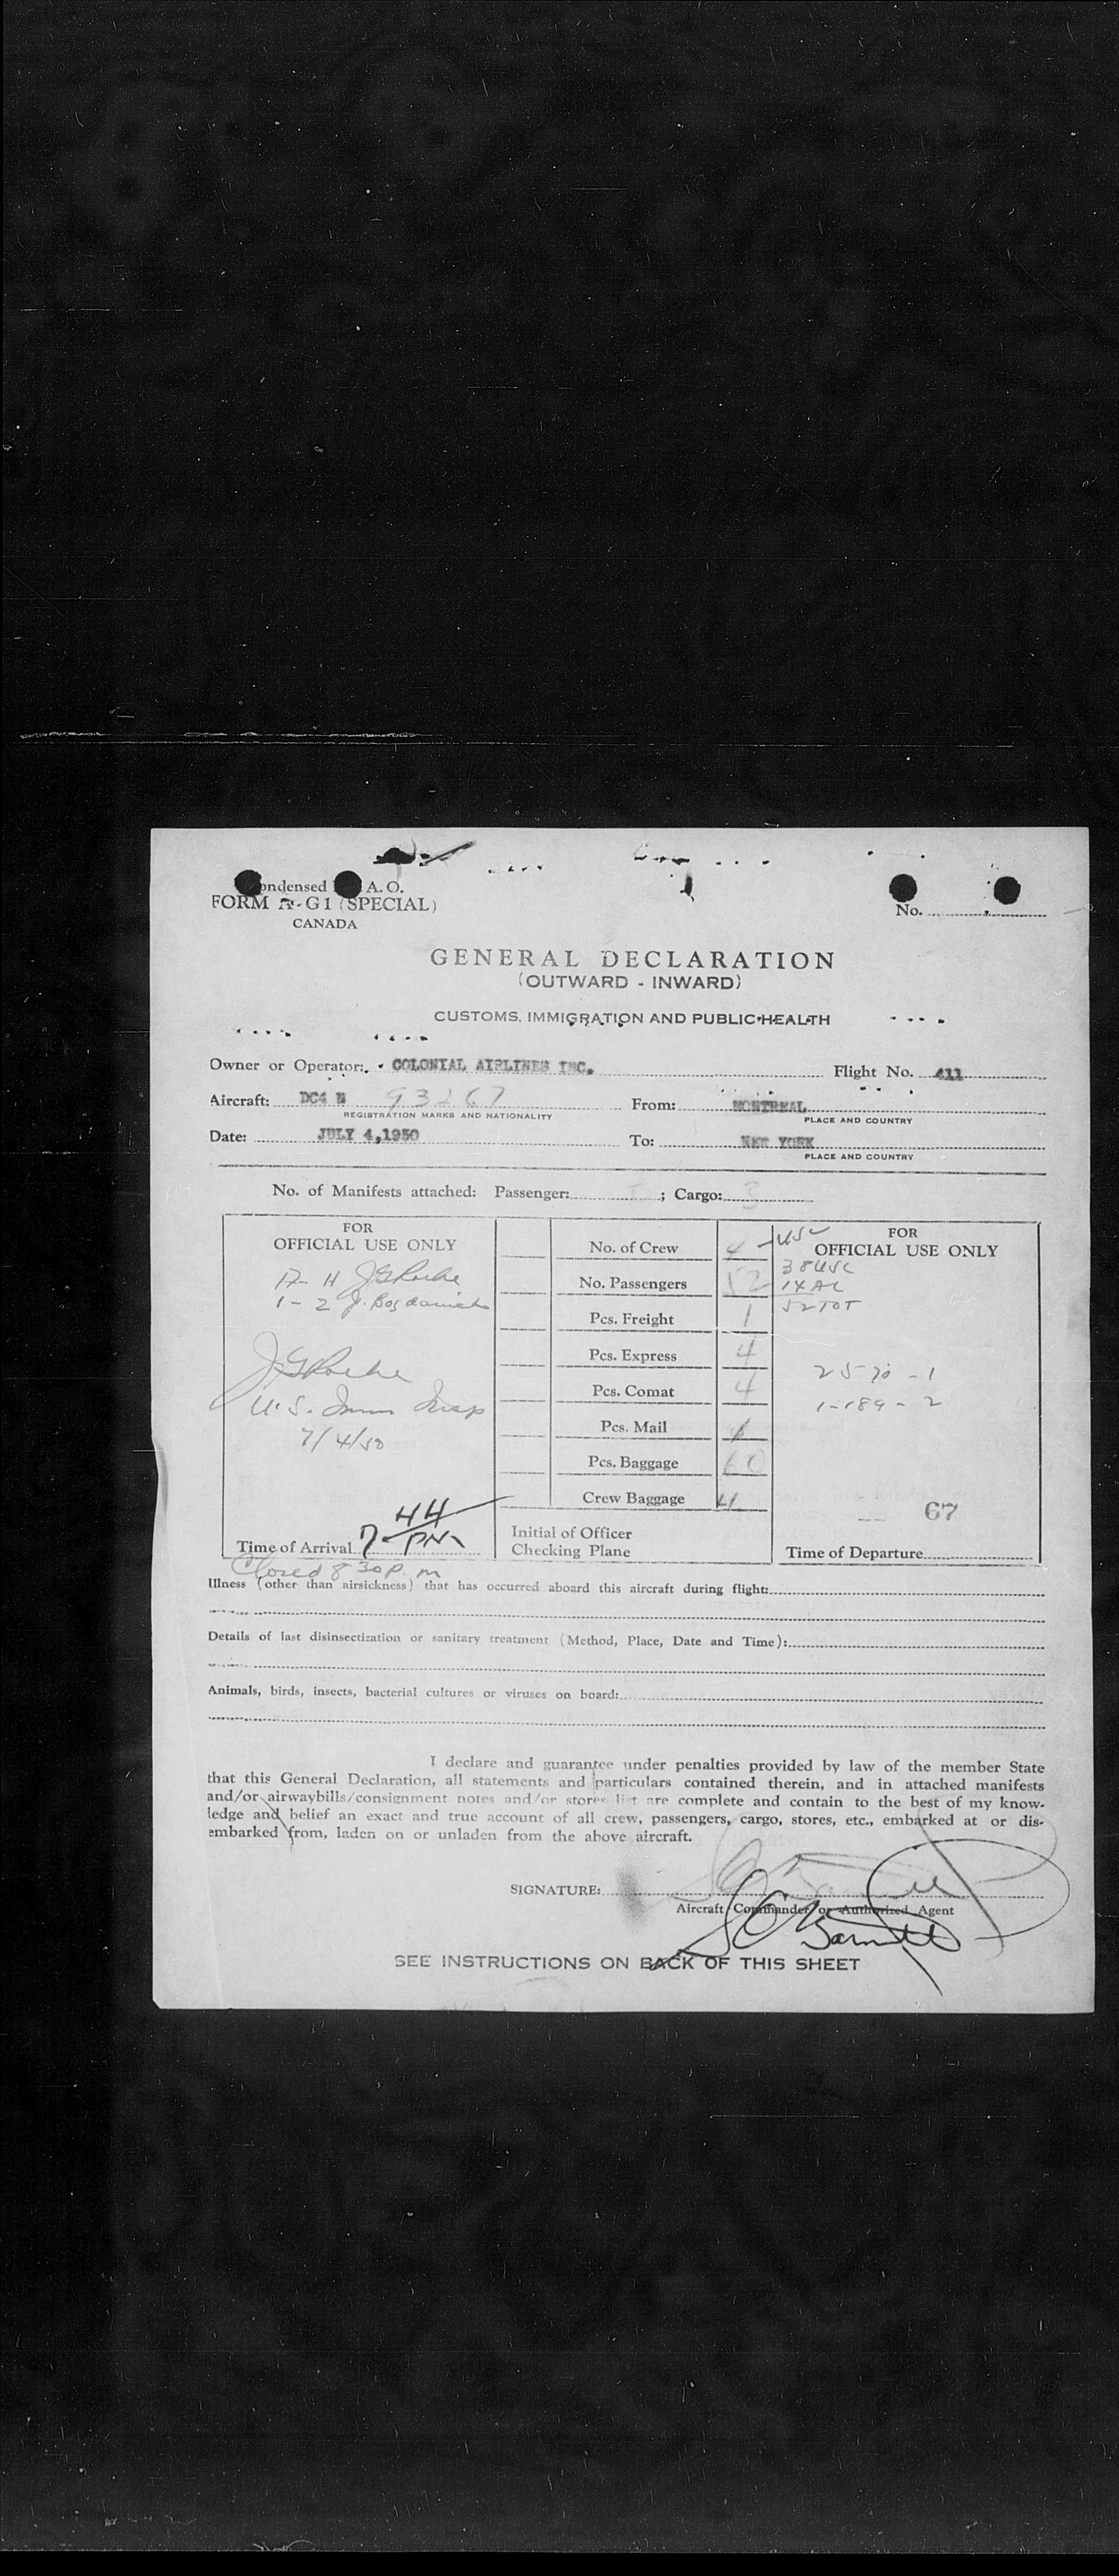 Condensed A. O.
FORM G1 (SPECIAL)
CANADA
No.
GENERAL DECLARATION
(OUTWARD - INWARD)
CUSTOMS, IMMIGRATION AND PUBLIC HEALTH
Owner or Operator: COLONIAL AIRLINES INC. Flight No. 411
Aircraft: DC4 N 93267 From: MONTREAL
REGISTRATION MARKS AND NATIONALITY PLACE AND COUNTRY
Date: JULY 4,1950 To: NEW YORK
PLACE AND COUNTRY
No. of Manifests attached: Passenger: ; Cargo: 3
FOR
OFFICIAL USE ONLY
J G Roche
1 - 2 J. Bogdanich
J G Roche
U. S. Imm Insp
7/4/50
Time of Arrival 7 44 PM
Closed 8 30 P. m
No. of Crew 4 USC
No. Passengers 52
Pcs. Freight 1
Pcs. Express 4
Pcs. Comat 4
Pcs. Mail 1
Pcs. Baggage 60
Crew Baggage 4
Initial of Officer
Checking Plane
FOR
OFFICIAL USE ONLY
38 USC
14 AL
52 TOT
1-189 - 2
67
Time of Departure
Illness (other than airsickness) that has occurred aboard this aircraft during flight:
Details of last disinsectization or sanitary treatment (Method, Place, Date and Time):
Animals, birds, insects, bacterial cultures or viruses on board:
I declare and guarantee under penalties provided by law of the member State
that this General Declaration, all statements and particulars contained therein, and in attached manifests
and/or airwaybills/consignment notes and/or stores list are complete and contain to the best of my know-
ledge and belief an exact and true account of all crew, passengers, cargo, stores, etc., embarked at or dis-
embarked from, laden on or unladen from the above aircraft.
SIGNATURE:
Aircraft Commander or Authorized Agent
SEE INSTRUCTIONS ON BACK OF THIS SHEET